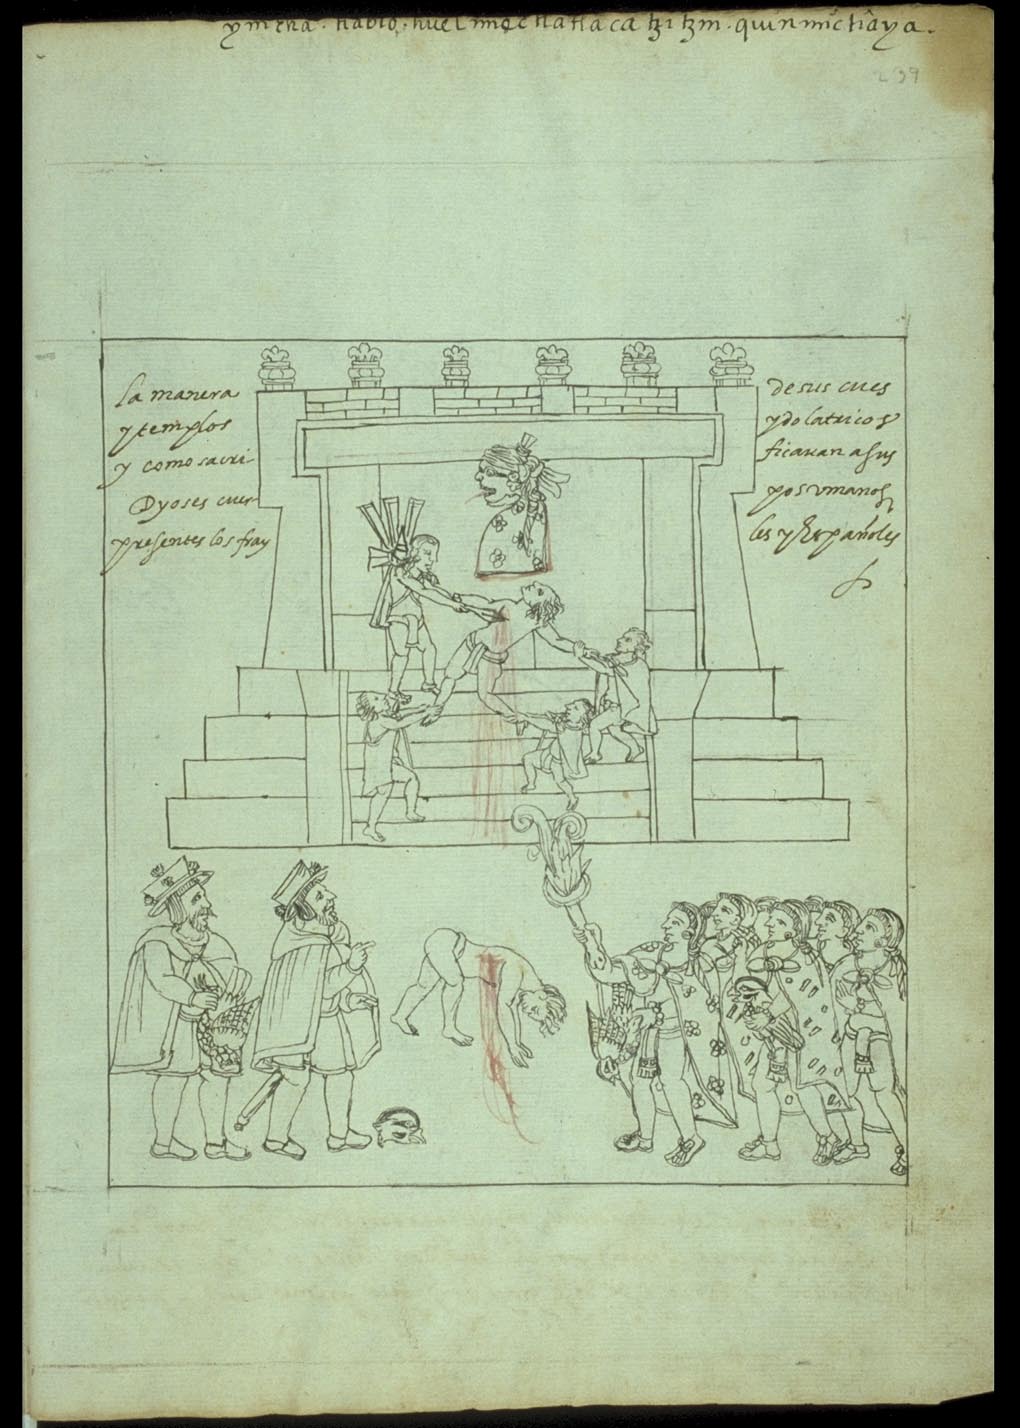 ymcha. diablo. huel miec tlatlacatzitzin. quinmictiaya.
239
la manera
y templos
y como sacri
Dyoses cuer
presentes los fray
de sus cues
ydolatricos
ficauan a sus
pos vmanos
les y Españoles